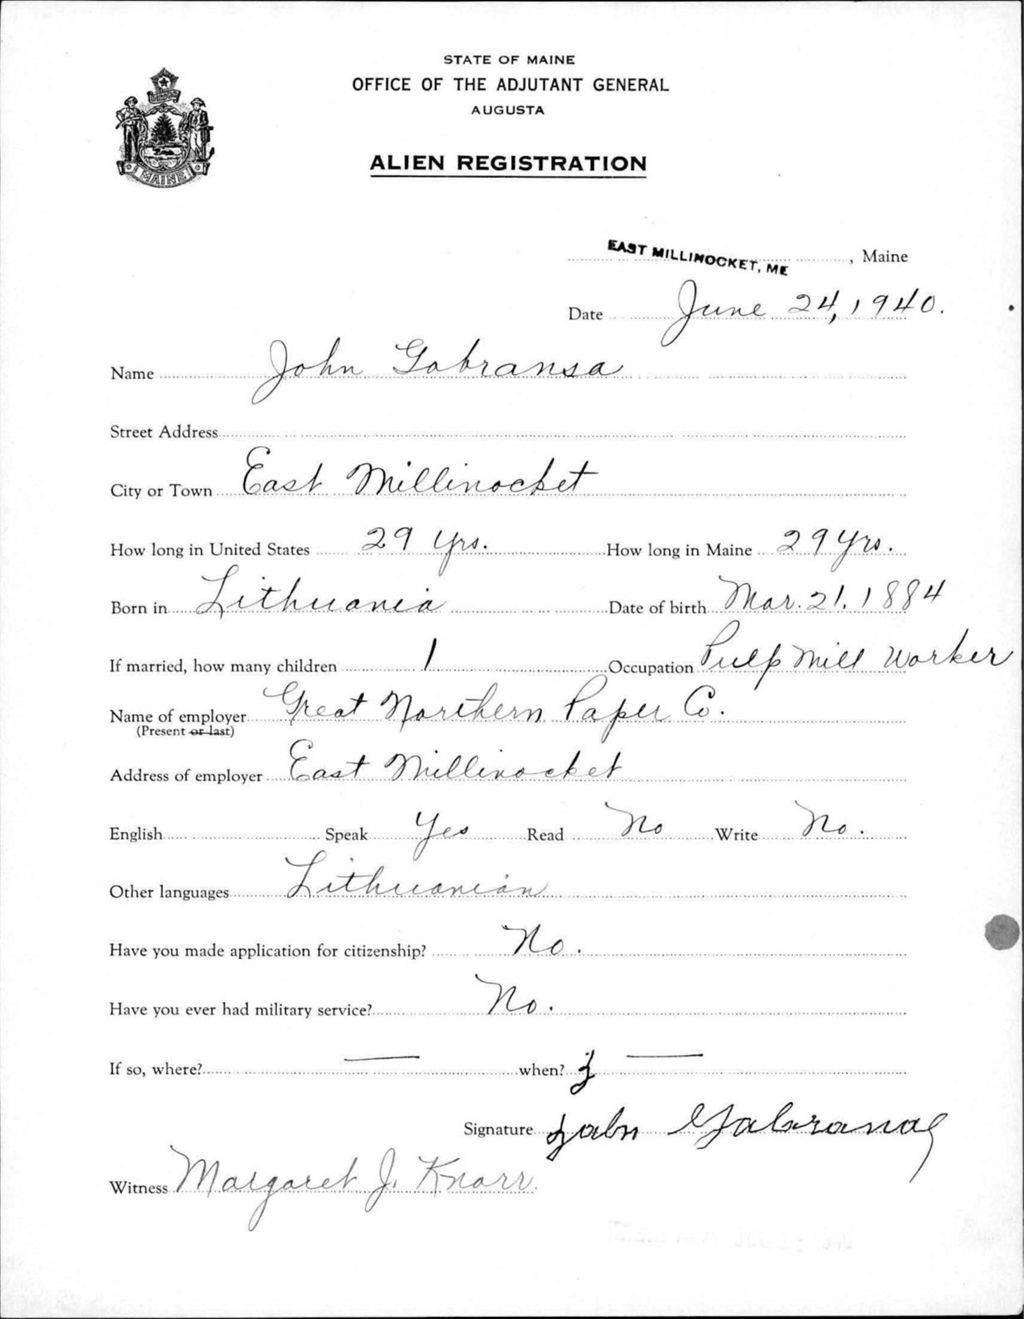 STATE OF MAINE
OFFICE OF THE ADJUTANT GENERAL
AUGUSTA
ALIEN REGISTRATION
MAINE
EAST MILLINOCKET, ME, Maine
Date June 24, 1940.
Name John Gobransa
Street Address
City or Town East Millinocket
How long in United States 29 yrs. How long in Maine 29 yrs.
Born in Lithuania Date of birth Mar. 21, 1884
If married, how many children 1 Occupation Pulp Mill Worker
Name of employer Great Northern Paper Co.
(Present or last)
Address of employer East Millinocket
English Speak Yes Read No Write No.
Other languages Lithuanian
Have you made application for citizenship? No.
Have you ever had military service? No.
If so, where? — when? —
Signature
Witness Margaret J. Knarr